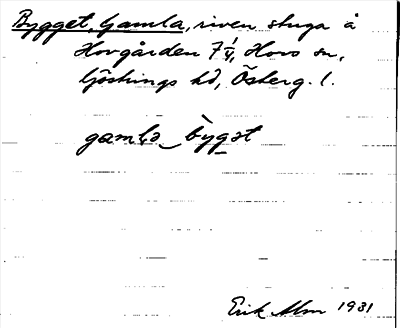 Bygget, Gamla, riven stuga å
Hovgården 7 1/4, Hovs sn,
Göstrings hd, Österg. l.
gamla bygət
Erik Alm 1931